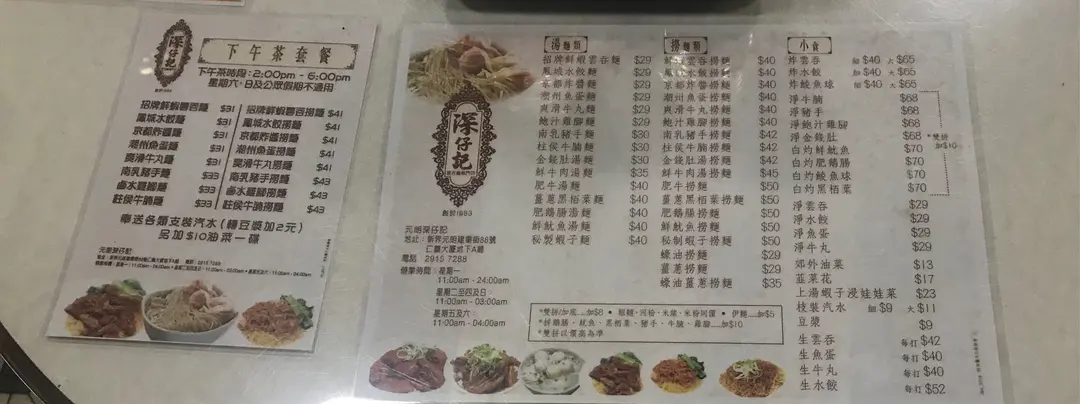 深仔記
下午茶套餐
下午茶時段:2:00pm - 6:00pm
星期六,日及公眾假期不適用
招牌鮮蝦雲吞麵 $31
鳳城水餃麵 $31
京都炸醬麵 $31
潮州魚蛋麵 $31
爽滑牛丸麵 $31
南乳豬手麵 $33
鹵水雞腳麵 $33
柱侯牛腩麵 $33
招牌鮮蝦雲吞撈麵 $41
鳳城水餃撈麵 $41
京都炸醬撈麵 $41
潮州魚蛋撈麵 $41
爽滑牛丸撈麵 $41
南乳豬手撈麵 $43
鹵水雞腳撈麵 $43
柱侯牛腩撈麵 $43
奉送各類支裝汽水(轉豆漿加2元)
另加$10油菜一碟
元朗深仔記
深仔記
創於1983
元朗深仔記
地址:新界元朗建業街88號
仁興大廈地下A鋪
電話 2915 7288
營業時間:星期一
11:00am - 24:00am
星期二至四及日
11:00am - 03:00am
星期五及六
11:00am - 04:00am
湯麵類
招牌鮮蝦雲吞麵 $29
鳳城水餃麵 $29
京都炸醬麵 $29
潮州魚蛋麵 $29
爽滑牛丸麵 $29
鮑汁雞腳麵 $29
南乳豬手麵 $30
柱侯牛腩麵 $30
金錢肚湯麵 $30
鮮牛肉湯麵 $35
肥牛湯麵 $40
薑蔥黑栢葉麵 $40
肥鵝腸湯麵 $40
鮮魷魚湯麵 $40
秘製蝦子麵 $40
撈麵類
鮮蝦雲吞撈麵 $40
鳳城水餃撈麵 $40
京都炸醬撈麵 $40
潮州魚蛋撈麵 $40
爽滑牛丸撈麵 $40
鮑汁雞腳撈麵 $40
南乳豬手撈麵 $42
柱侯牛腩撈麵 $42
金錢肚撈麵 $42
鮮牛肉撈麵 $45
肥牛撈麵 $50
薑蔥黑栢葉撈麵 $50
肥鵝腸撈麵 $50
鮮魷魚撈麵 $50
秘制蝦子撈麵 $50
蠔油撈麵 $29
薑蔥撈麵 $29
蠔油薑蔥撈麵 $35
小食
炸雲吞 細$40 大$65
炸水餃 細$40 大$65
炸鯪魚球 細$40 大$65
淨牛腩 $68
淨豬手 $68
淨鮑汁雞腳 $68
淨金錢肚 $68
白灼鮮魷魚 $70
白灼肥鵝腸 $70
白灼鯪魚球 $70
白灼黑栢葉 $70
*雙拼
加$10
淨雲吞 $29
淨水餃 $29
淨魚蛋 $29
淨牛丸 $29
郊外油菜 $13
韮菜花 $17
上湯蝦子浸娃娃菜 $23
枝裝汽水 細$9 大$11
豆漿 $9
生雲吞 每打$42
生魚蛋 每打$40
生牛丸 每打$40
生水餃 每打$52
*雙拼/加底...加$8 • 粗麵、河粉、米線、米粉同價 • 伊麵...加$5
*拼鵝腸、魷魚、黑栢葉、豬手、牛腩、雞腳...加$10
*雙拼以價高為準